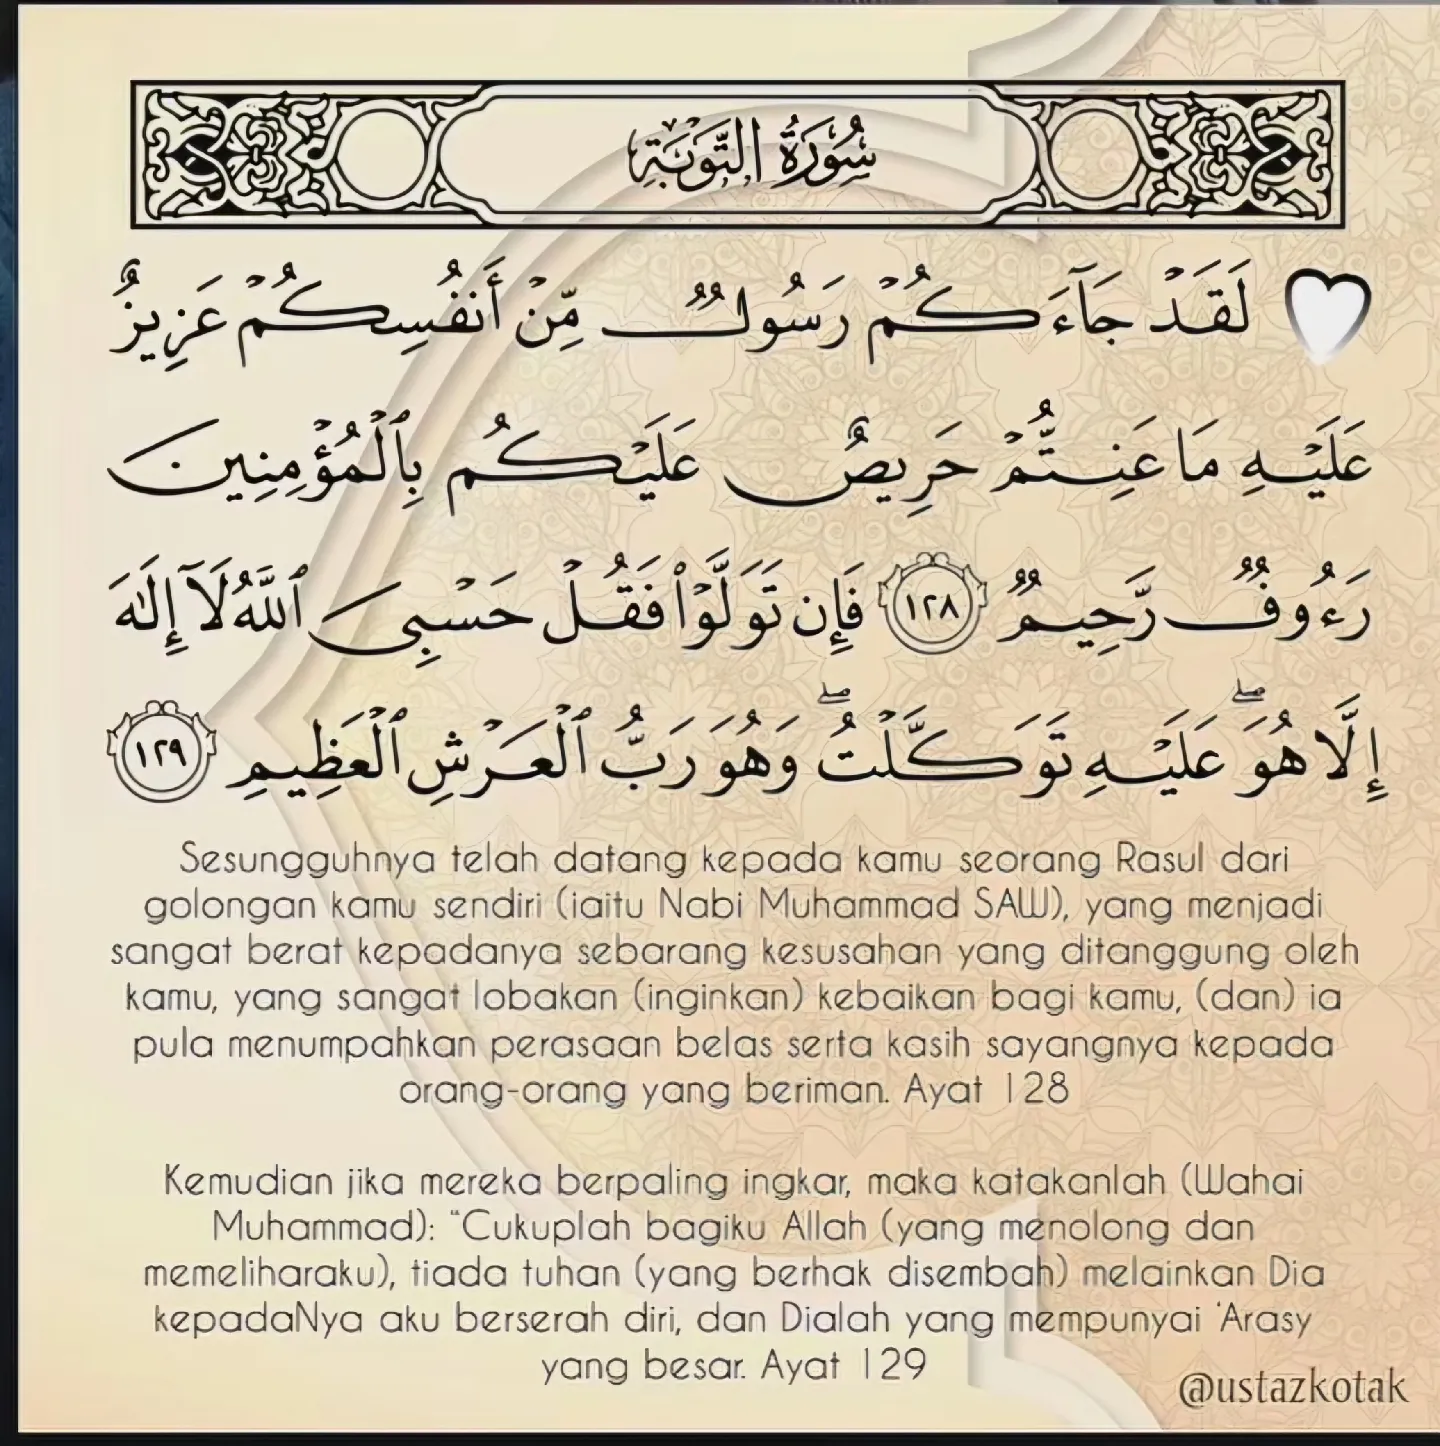 سُورَةُ التَّوْبَةِ
لَقَدْ جَآءَكُمْ رَسُولٌ مِّنْ أَنفُسِكُمْ عَزِيزٌ
عَلَيْهِ مَا عَنِتُّمْ حَرِيصٌ عَلَيْكُم بِٱلْمُؤْمِنِينَ
رَءُوفٌ رَّحِيمٌ ١٢٨ فَإِن تَوَلَّوْا۟ فَقُلْ حَسْبِىَ ٱللَّهُ لَآ إِلَٰهَ
إِلَّا هُوَ ۖ عَلَيْهِ تَوَكَّلْتُ ۖ وَهُوَ رَبُّ ٱلْعَرْشِ ٱلْعَظِيمِ ١٢٩
Sesungguhnya telah datang kepada kamu seorang Rasul dari
golongan kamu sendiri (iaitu Nabi Muhammad SAW), yang menjadi
sangat berat kepadanya sebarang kesusahan yang ditanggung oleh
kamu, yang sangat lobakan (inginkan) kebaikan bagi kamu, (dan) ia
pula menumpahkan perasaan belas serta kasih sayangnya kepada
orang-orang yang beriman. Ayat 128
Kemudian jika mereka berpaling ingkar, maka katakanlah (Wahai
Muhammad): “Cukuplah bagiku Allah (yang menolong dan
memeliharaku), tiada tuhan (yang berhak disembah) melainkan Dia
kepadaNya aku berserah diri, dan Dialah yang mempunyai 'Arasy
yang besar. Ayat 129
@ustazkotak